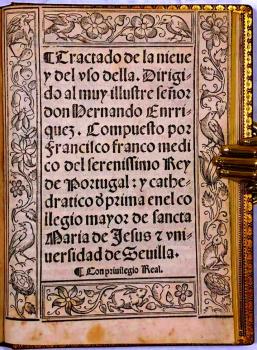 ¶Tractado de la nieue
y del vso della. Dirigi
do al muy illustre señor
don Hernando Enrri
quez. Compuesto por
Francisco franco medi
co del serenissimo Rey
de Portugal: y cathe
dratico d̄ prima enel co
llegio mayor de sancta
Maria de Jesus ⁊ vni
uersidad de Seuilla.
¶ Con priuilegio Real.